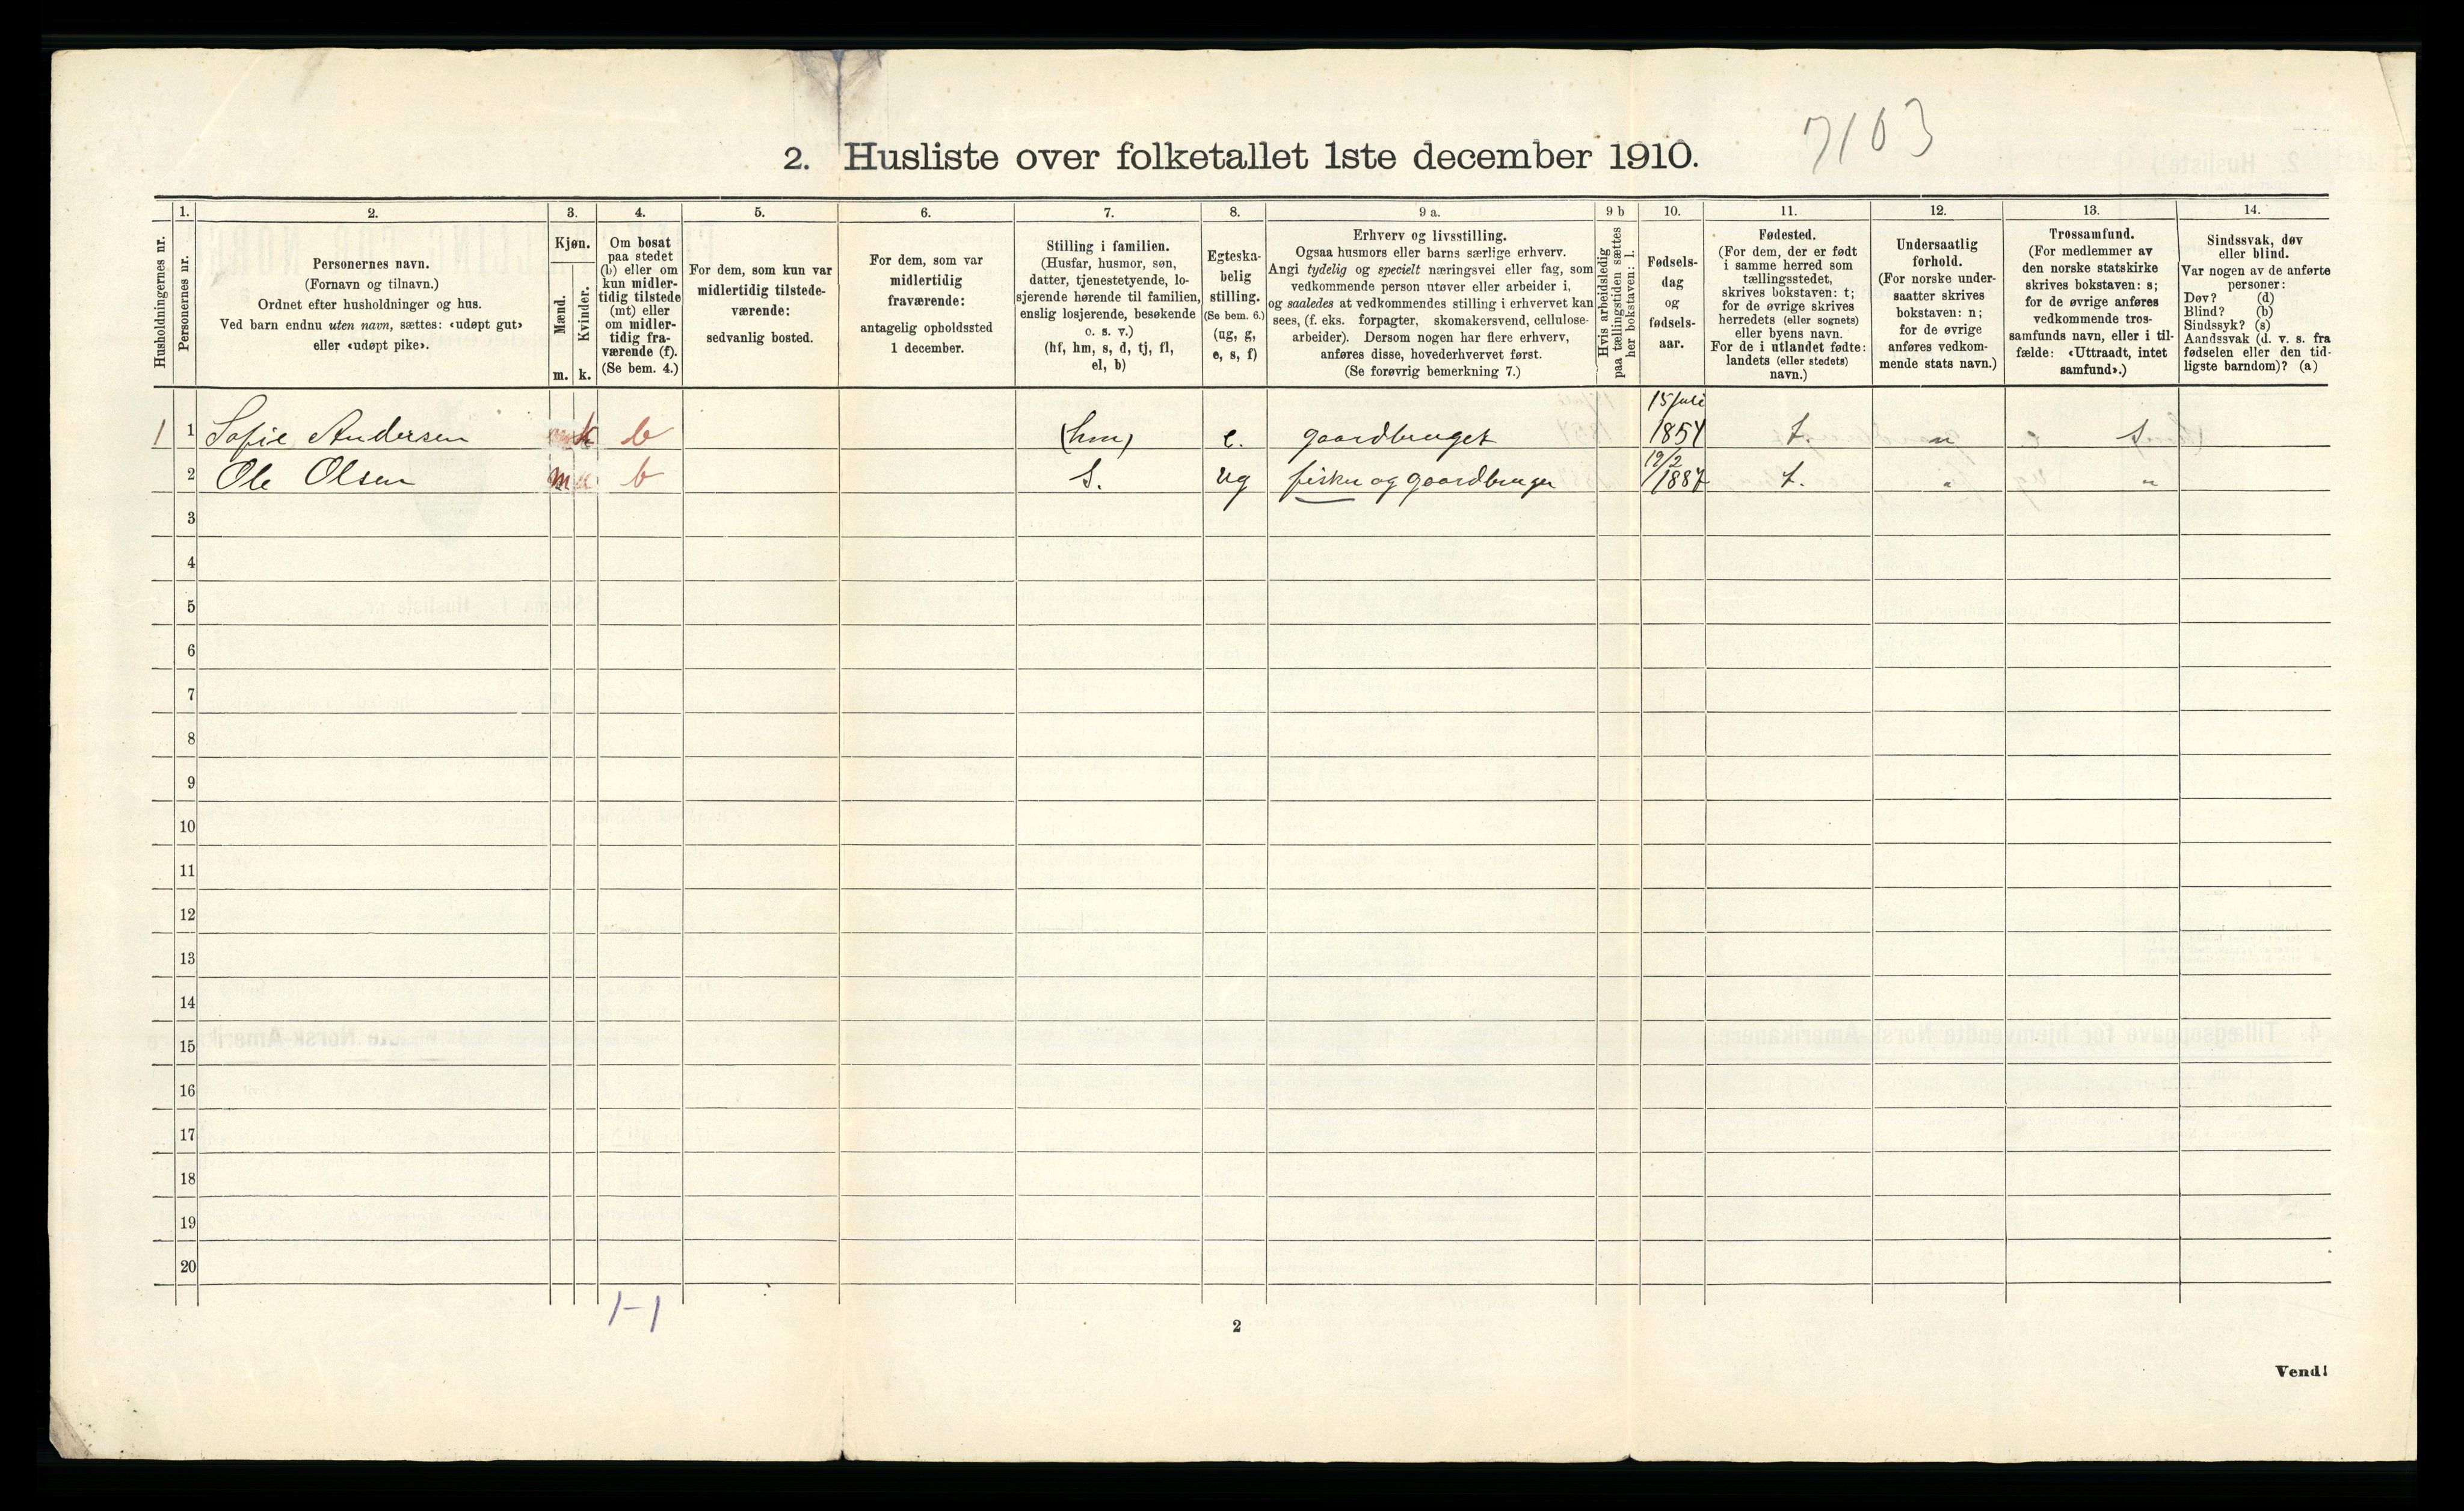 7103
2. Husliste over folketallet 1ste december 1910.
Husholdningernes nr.
1.
Personernes nr.
2.
Personernes navn.
(Fornavn og tilnavn.)
Ordnet efter husholdninger og hus.
Ved barn endnu uten navn, sættes: «udøpt gut»
eller «udøpt pike».
3.
Kjøn.
Mænd.
Kvinder.
m. k.
4.
Om bosat
paa stedet
(b) eller om
kun midler-
tidig tilstede
(mt) eller
om midler-
tidig fra-
værende (f).
(Se bem. 4.)
5.
For dem, som kun var
midlertidig tilstede-
værende:
sedvanlig bosted.
6.
For dem, som var
midlertidig
fraværende:
antagelig opholdssted
1 december.
7.
Stilling i familien.
(Husfar, husmor, søn,
datter, tjenestetyende, lo-
sjerende hørende til familien,
enslig losjerende, besøkende
o. s. v.)
(hf, hm, s, d, tj, fl,
el, b)
8.
Egteska-
belig
stilling.
(Se bem. 6.)
(ug, g,
e, s, f)
9 a.
Erhverv og livsstilling.
Ogsaa husmors eller barns særlige erhverv.
Angi tydelig og specielt næringsvei eller fag, som
vedkommende person utøver eller arbeider i,
og saaledes at vedkommendes stilling i erhvervet kan
sees, (f. eks. forpagter, skomakersvend, cellulose-
arbeider). Dersom nogen har flere erhverv,
anføres disse, hovederhvervet først.
(Se forøvrig bemerkning 7.)
9 b
Hvis arbeidsledig
paa tællingstiden sættes
her bokstaven: l.
10.
Fødsels-
dag
og
fødsels-
aar.
11.
Fødested.
(For dem, der er født
i samme herred som
tællingsstedet,
skrives bokstaven: t;
for de øvrige skrives
herredets (eller sognets)
eller byens navn.
For de i utlandet fødte:
landets (eller stedets)
navn.)
12.
Undersaatlig
forhold.
(For norske under-
saatter skrives
bokstaven: n;
for de øvrige
anføres vedkom-
mende stats navn.)
13.
Trossamfund.
(For medlemmer av
den norske statskirke
skrives bokstaven: s;
for de øvrige anføres
vedkommende tros-
samfunds navn, eller i til-
fælde: «Uttraadt, intet
samfund».)
14.
Sindssvak, døv
eller blind.
Var nogen av de anførte
personer:
Døv? (d)
Blind? (b)
Sindssyk? (s)
Aandssvak (d. v. s. fra
fødselen eller den tid-
ligste barndom)? (a)
1 1 Sofie Andersen k b (hm) e. gaardbruget 15 juli 1854 t. n s
2 Ole Olsen m b s. ug fisker og gaardbruger 19/2 1887 t. " "
3
4
5
6
7
8
9
10
11
12
13
14
15
16
17
18
19
20
1-1
2
Vend!